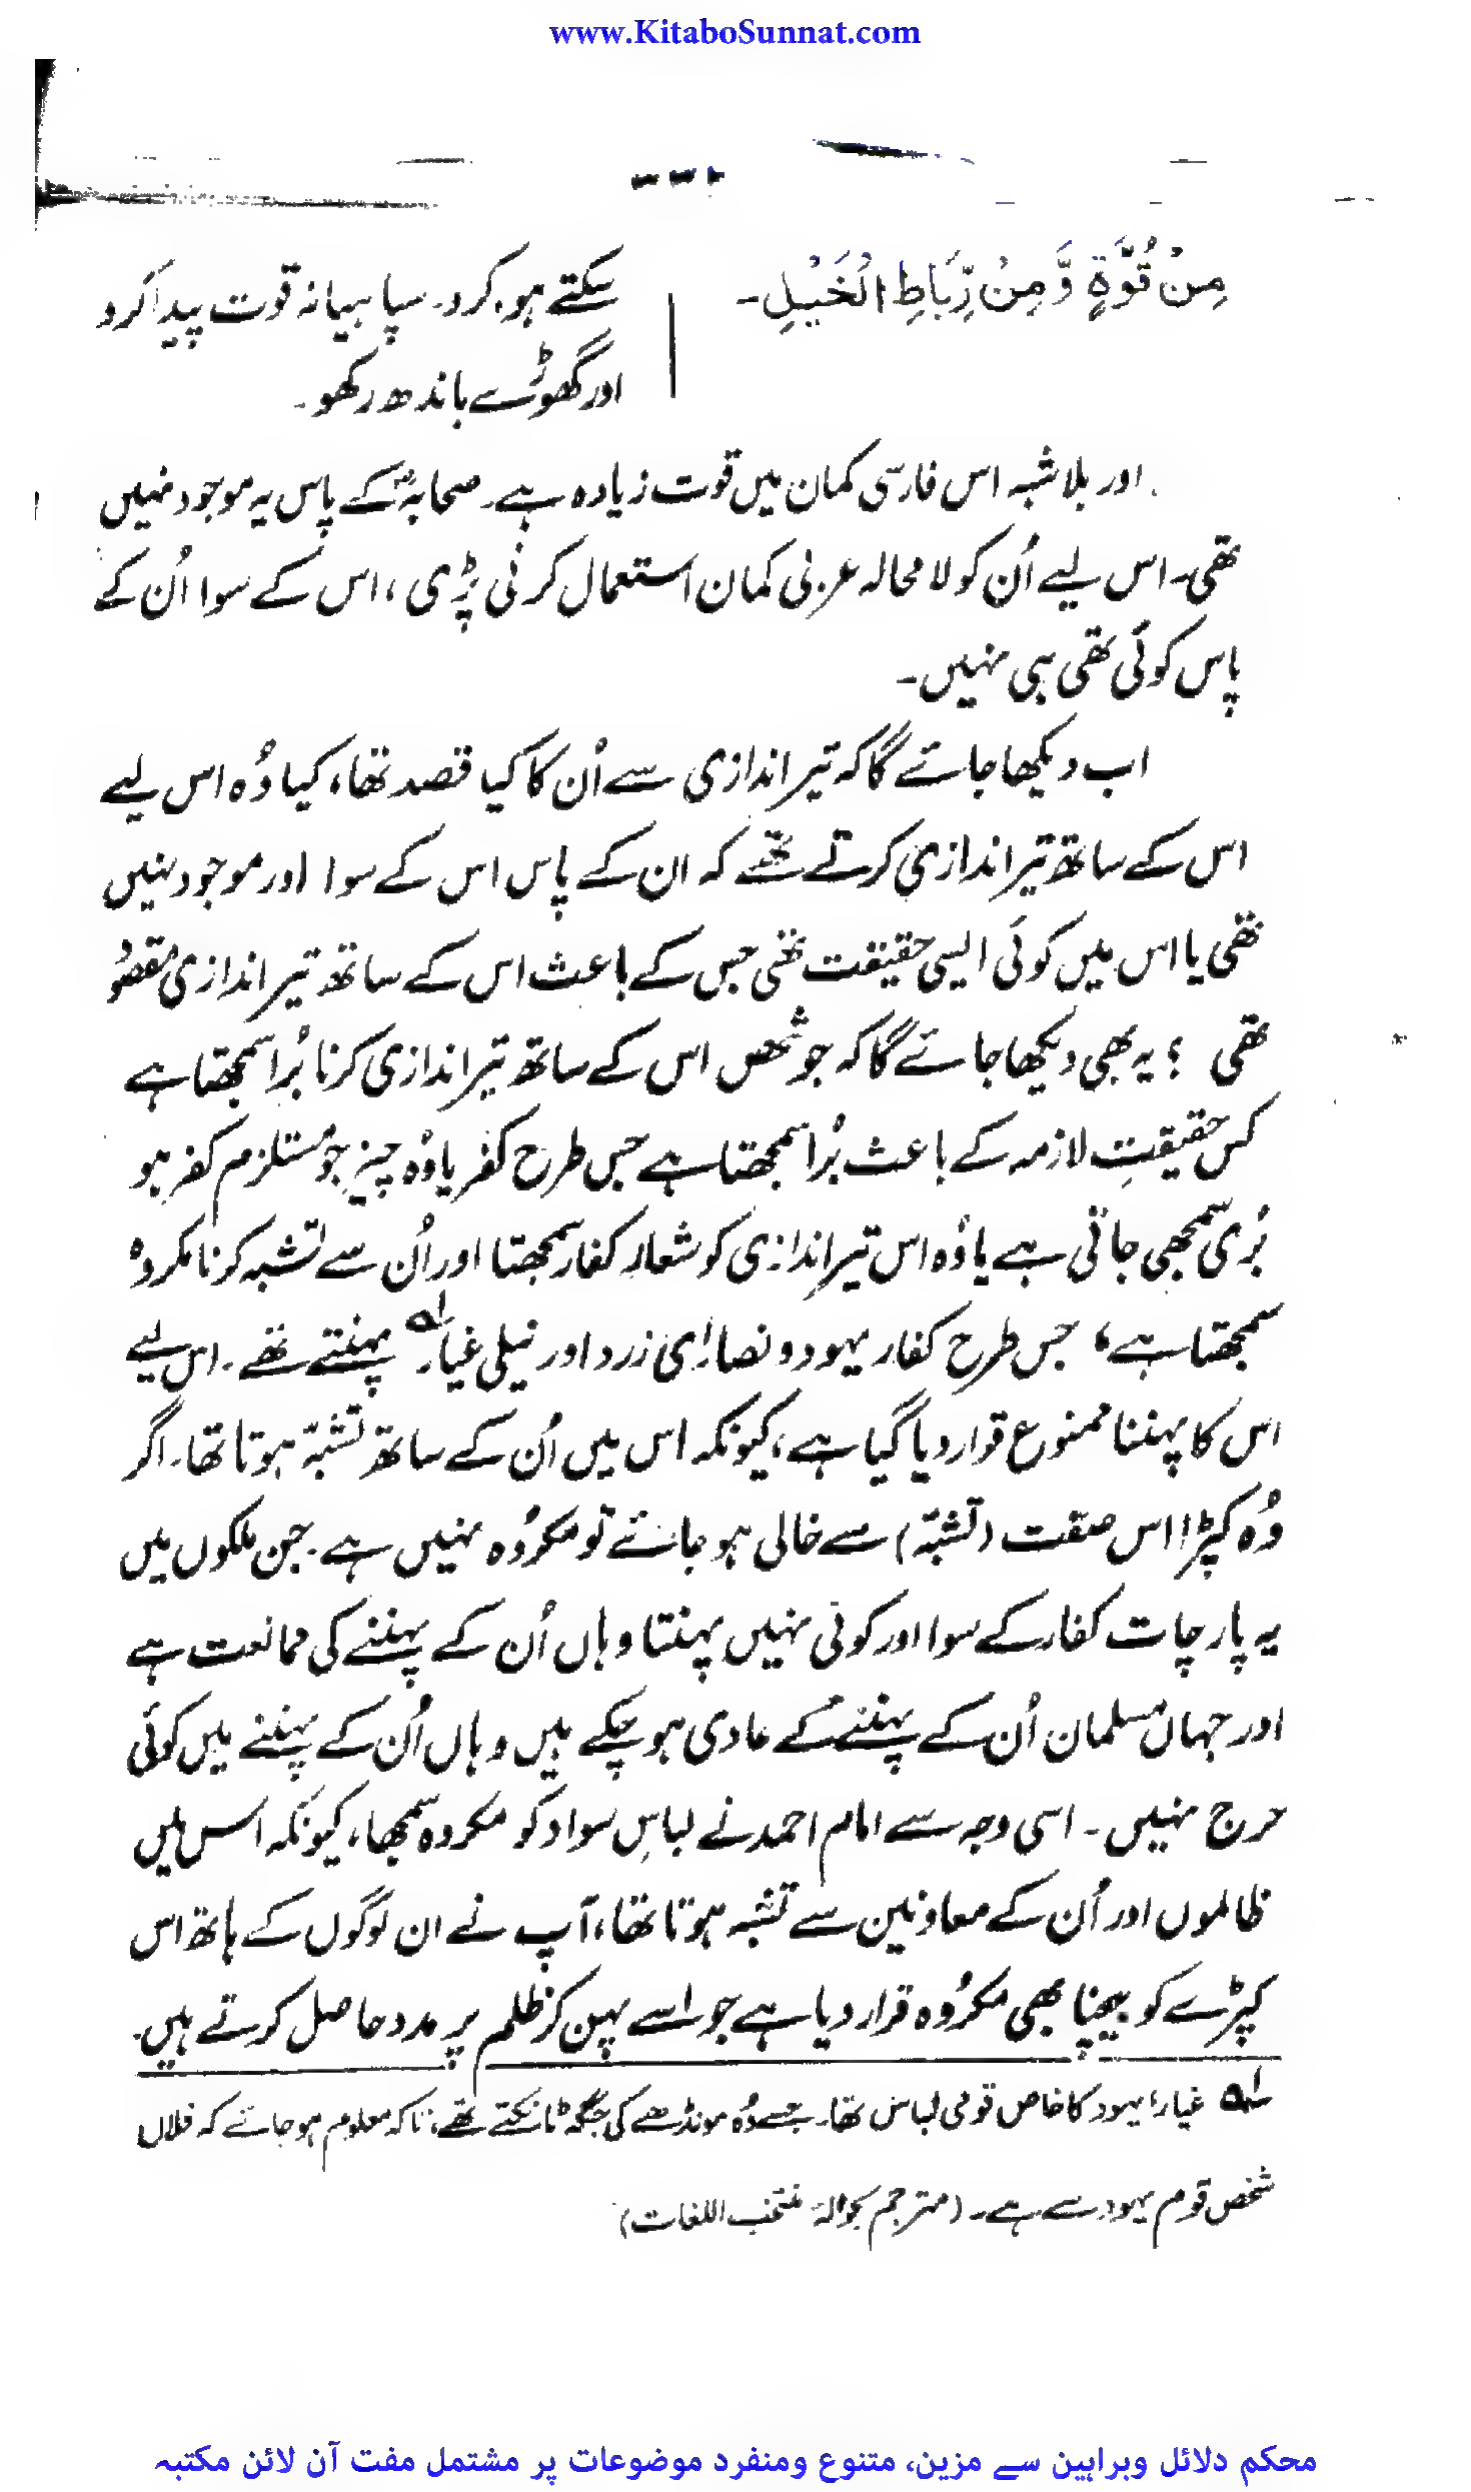 www.KitaboSunnat.com
مِنْ قُوَّةٍ وَّمِنْ رِّبَاطِ الْخَيْلِ۔
سکتے ہو، کرو۔ سپاہیانہ قوت پیدا کرو
اور گھوڑے باندھ رکھو۔
اور بلاشبہ اس فارسی کمان میں قوت زیادہ ہے۔ صحابہؓ کے پاس یہ موجود نہیں
تھی۔ اس لیے اُن کو لامحالہ عربی کمان استعمال کرنی پڑی، اس کے سوا اُن کے
پاس کوئی تھی ہی نہیں۔
اب دیکھا جائے گا کہ تیراندازی سے اُن کا کیا قصد تھا، کیا وُہ اس لیے
اس کے ساتھ تیراندازی کرتے تھے کہ ان کے پاس اس کے سوا اور موجود نہیں
تھی یا اس میں کوئی ایسی حقیقت تھی جس کے باعث اس کے ساتھ تیراندازی مقصُو
تھی ؟ یہ بھی دیکھا جائے گا کہ جو شخص اس کے ساتھ تیراندازی کرنا بُرا سمجھتا ہے
کس حقیقتِ لازمہ کے باعث بُرا سمجھتا ہے جس طرح کفر یا وُہ چیز جو مُستلزم کفر ہو
بُری سمجھی جاتی ہے یا وُہ اس تیراندازی کو شعار کفار سمجھتا اور اُن سے تشبہ کرنا مکروہ
سمجھتا ہے، جس طرح کفار یہود و نصاریٰ زرد اور نیلی غیار ۱؎ پہنتے تھے۔ اس لیے
اس کا پہننا ممنوع قرار دیا گیا ہے، کیونکہ اس میں اُن کے ساتھ تشبّہ ہوتا تھا۔ اگر
وُہ کپڑا اس صفت (تشبّہ) سے خالی ہو جائے تو مکرُوہ نہیں ہے۔ جن ملکوں میں
یہ پارچات کفار کے سوا اور کوئی نہیں پہنتا وہاں اُن کے پہننے کی ممانعت ہے
اور جہاں مسلمان اُن کے پہننے کے عادی ہو چکے ہیں وہاں اُن کے پہننے میں کوئی
حرج نہیں۔ اسی وجہ سے امام احمد نے لباسِ سواد کو مکروہ سمجھا، کیونکہ اس میں
ظالموں اور اُن کے معاونین سے تشبہ ہوتا تھا، آپ نے ان لوگوں کے ہاتھ اس
کپڑے کو بیچنا بھی مکرُوہ قرار دیا ہے جو اسے پہن کر ظلم پر مدد حاصل کرتے ہیں۔
۱؎ غیار، یہود کا خاص قومی لباس تھا۔ جسے وُہ مونڈھے کی جگہ ٹانکتے تھے، تاکہ معلوم ہو جائے کہ فلاں
شخص قوم یہود سے ہے۔ (مترجم بحوالہ منتخب اللغات)
محکم دلائل وبراہین سے مزین، متنوع ومنفرد موضوعات پر مشتمل مفت آن لائن مکتبہ